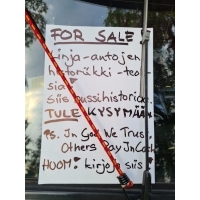 FOR SALE!
Linja-autojen
historiikki-teok-
sia!
Siis bussihistoriaa.
TULE KYSYMÄÄN
Ps. In God We Trust,
Others Pay In Cash
HUOM! kirjoja siis!